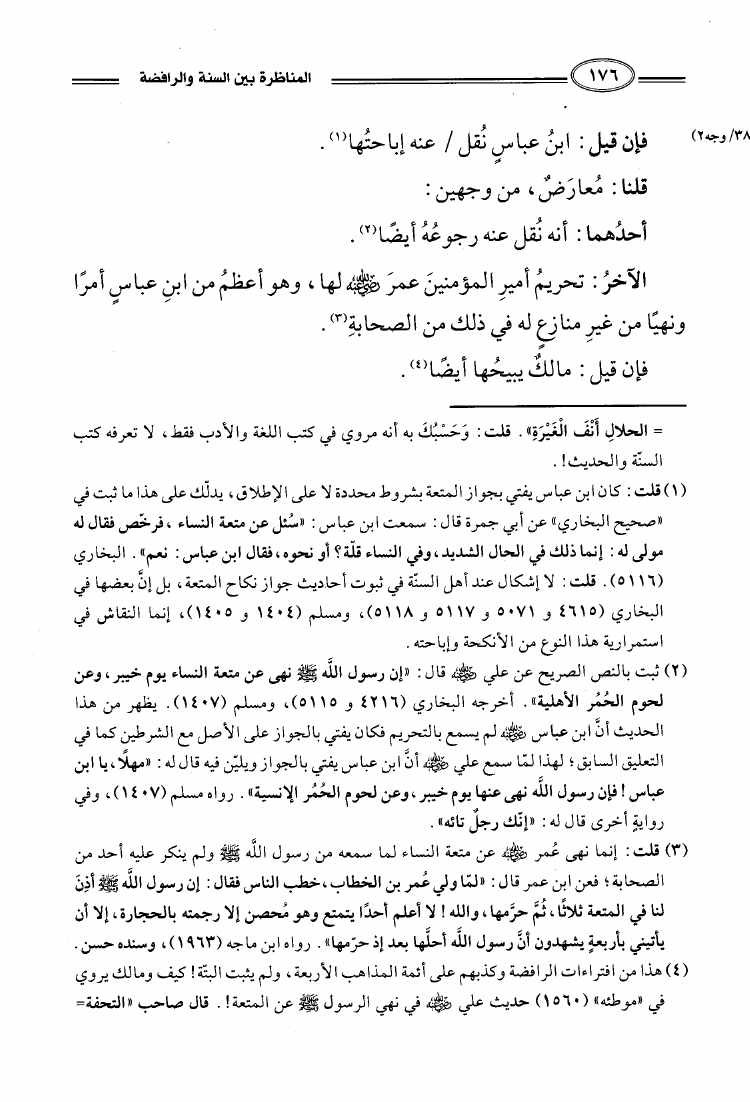 ١٧٦ المناظرة بين السنة والرافضة
٣٨/ وجه٢) فإن قيل: ابنُ عباسٍ نُقل / عنه إباحتُها(١).
قلنا: مُعارَضٌ، من وجهين:
أحدُهما: أنه نُقل عنه رجوعُهُ أيضًا(٢).
الآخرُ: تحريمُ أميرِ المؤمنينَ عمرَ رضي الله عنه لها، وهو أعظمُ من ابنِ عباسٍ أمرًا
ونهيًا من غيرِ منازعٍ له في ذلك من الصحابةِ(٣).
فإن قيل: مالكٌ يبيحُها أيضًا(٤).
= الحلالِ أَنْفَ الْغَيْرَةِ». قلت: وَحَسْبُكَ به أنه مروي في كتب اللغة والأدب فقط، لا تعرفه كتب
السنّة والحديث!.
(١) قلت: كان ابن عباس يفتي بجواز المتعة بشروط محددة لا على الإطلاق، يدلّك على هذا ما ثبت في
«صحيح البخاري» عن أبي جمرة قال: سمعت ابن عباس: «سُئل عن متعة النساء، فرخّص فقال له
مولى له: إنما ذلك في الحال الشديد، وفي النساء قلّة؟ أو نحوه، فقال ابن عباس: نعم». البخاري
(٥١١٦). قلت: لا إشكال عند أهل السنّة في ثبوت أحاديث جواز نكاح المتعة، بل إنَّ بعضها في
البخاري (٤٦١٥ و ٥٠٧١ و ٥١١٧ و ٥١١٨)، ومسلم (١٤٠٤ و ١٤٠٥)، إنما النقاش في
استمرارية هذا النوع من الأنكحة وإباحته.
(٢) ثبت بالنص الصريح عن علي رضي الله عنه قال: «إن رسول اللَّه ﷺ نهى عن متعة النساء يوم خيبر، وعن
لحوم الحُمُر الأهلية». أخرجه البخاري (٤٢١٦ و ٥١١٥)، ومسلم (١٤٠٧). يظهر من هذا
الحديث أنَّ ابن عباس رضي الله عنه لم يسمع بالتحريم فكان يفتي بالجواز على الأصل مع الشرطين كما في
التعليق السابق؛ لهذا لمّا سمع علي رضي الله عنه أنَّ ابن عباس يفتي بالجواز ويليّن فيه قال له: «مهلًا، يا ابن
عباس! فإن رسول اللَّه نهى عنها يوم خيبر، وعن لحوم الحُمُر الإنسية». رواه مسلم (١٤٠٧)، وفي
روايةٍ أخرى قال له: «إنّك رجلٌ تائه».
(٣) قلت: إنما نهى عُمر رضي الله عنه عن متعة النساء لما سمعه من رسول اللَّه ﷺ ولم ينكر عليه أحد من
الصحابة؛ فعن ابن عمر قال: «لمّا ولي عُمر بن الخطاب، خطب الناس فقال: إن رسول اللَّه ﷺ أذِنَ
لنا في المتعة ثلاثًا، ثُمَّ حرَّمها، واللَّه! لا أعلم أحدًا يتمتع وهو مُحصن إلا رجمته بالحجارة، إلا أن
يأتيني بأربعةٍ يشهدون أنَّ رسول اللَّه أحلَّها بعد إذ حرّمها». رواه ابن ماجه (١٩٦٣)، وسنده حسن.
(٤) هذا من افتراءات الرافضة وكذبهم على أئمة المذاهب الأربعة، ولم يثبت البتّة! كيف ومالك يروي
في «موطئه» (١٥٦٠) حديث علي رضي الله عنه في نهي الرسول ﷺ عن المتعة!. قال صاحب «التحفة=